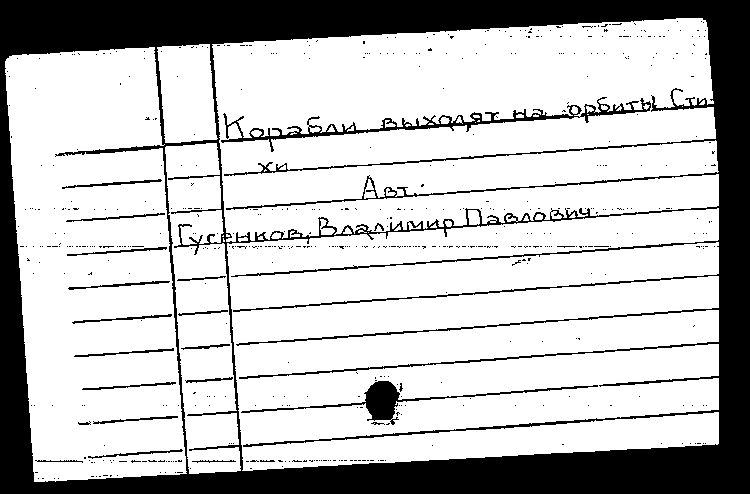 Корабли выходят на орбиты Сти-
хи
Авт.:
Гусенков, Владимир Павлович.